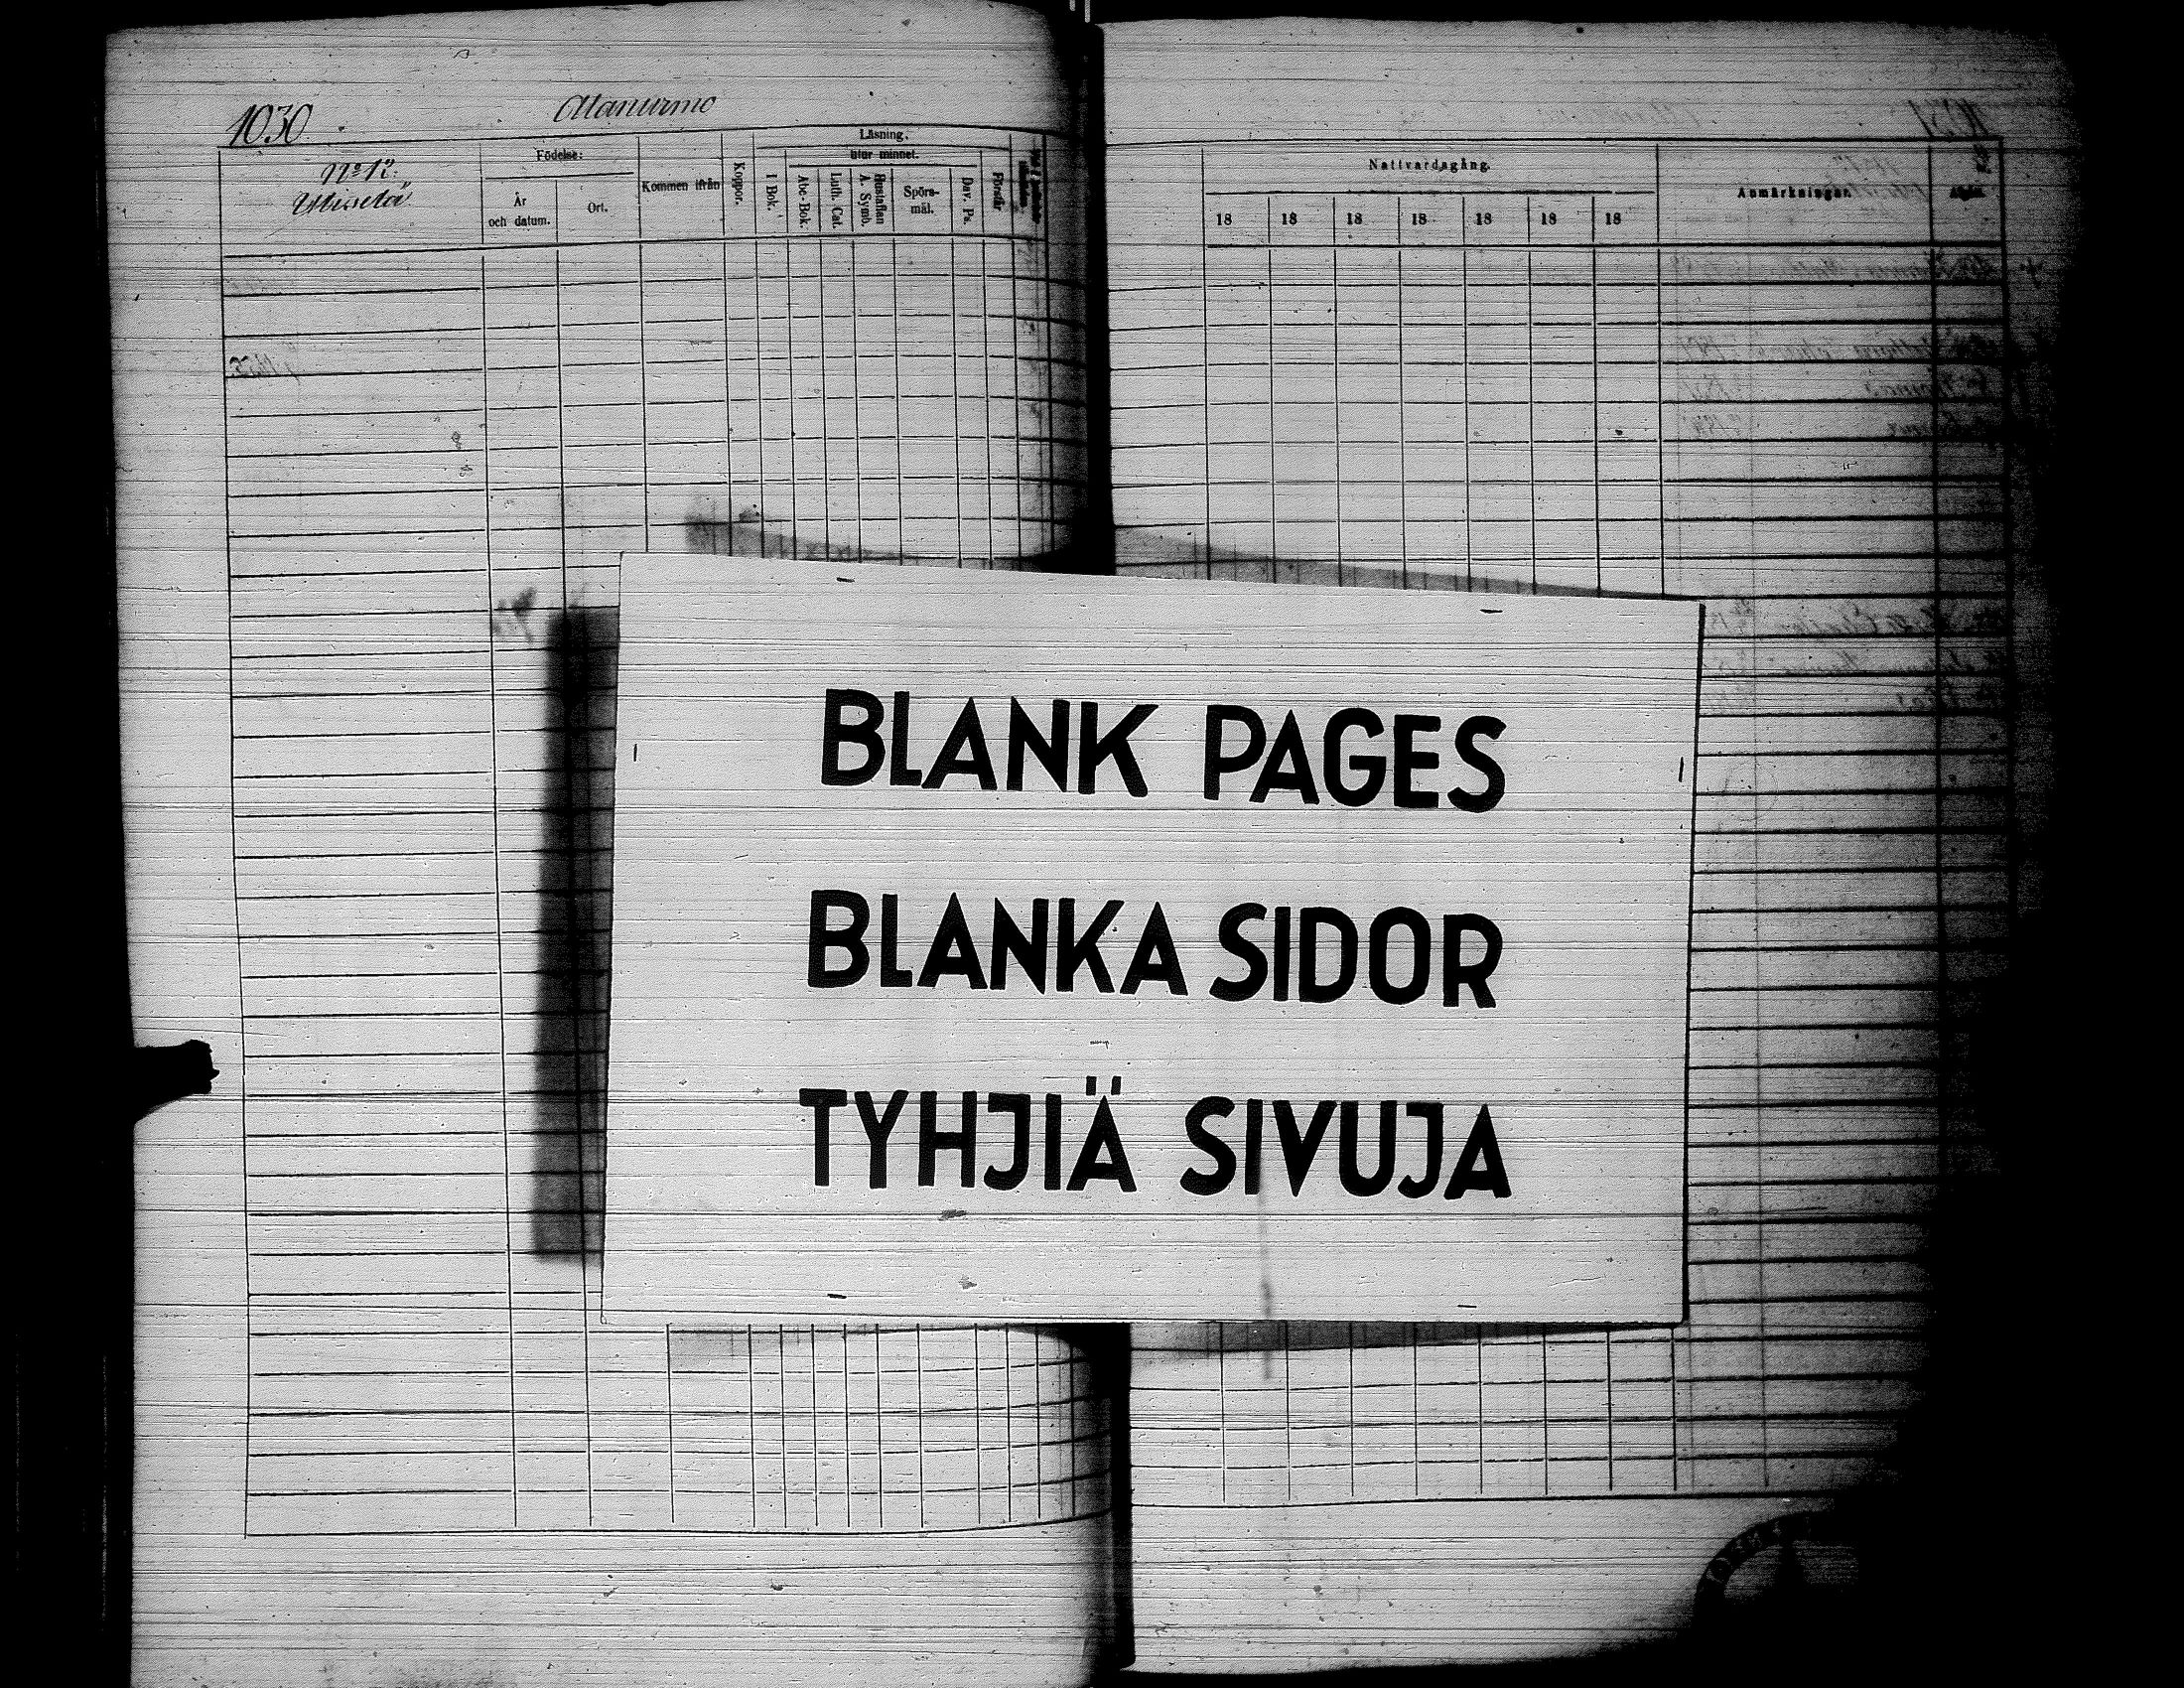 1030
Alanurmo
No 12.
Födelse:
År
och datum.
Ort.
Kommen ifrån
Koppor.
Läsning.
utur minnet.
I Bok.
Abc-Bok.
Luth. Cat.
Hustaflan
A. Symb.
Spörs-
mål.
Dav. Ps.
Förstår
Nattvardsgång.
18 18 18 18 18 18 18
Anmärkningar.
BLANK PAGES
BLANKA SIDOR
TYHJIÄ SIVUJA